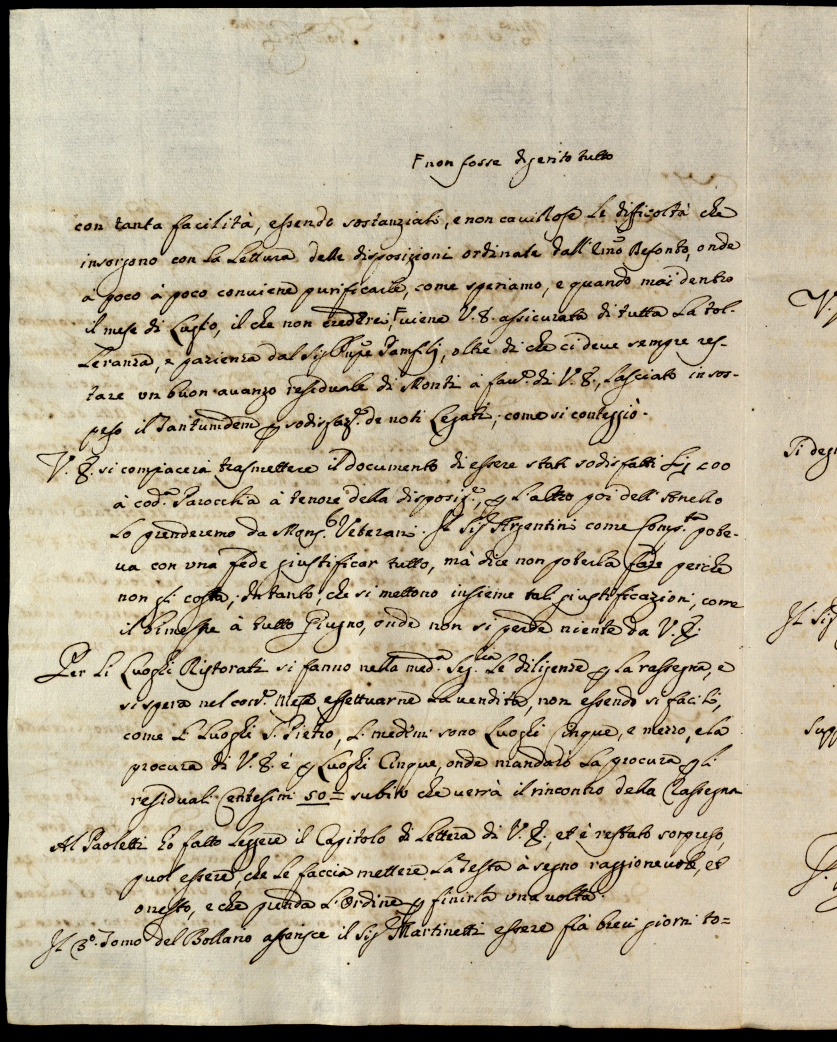 non fosse digerito tutto
con tanta facilità, essendo sostanziali, e non cavillose le difficoltà che
insorgono con la lettura delle disposizioni ordinate dall' Em̃o Besonto, onde
à poco à poco conviene purificarle, come speriamo, e quando mai dentro
il mese di Luglio, il che non crederei, viene V. S. assicurata di tutta la tol-
leranza, e pazienza dal Sig.r Pñpe Pamfilj, oltre di che ci deve sempre res-
tare un buon avanzo residuale di Monti à fav.e di V. S., lasciato in sos-
peso il Tantumdem p sodisfaz.e de noti Legati, come si conteggiò.
V. S. si compiacerà trasmettere il documento di essere stati sodisfatti li 400
à cod.a Parocchia à tenore della disposiz.e, e l'altro poi dell'
lo prenderemo da Mons.r Veterani. Il Sig.r Argentini come Comp.ta pote-
va con una fede giustificar tutto, mà dice non poterla fare perche
non gli costa; Intanto, che si mettono insieme tali giustificazioni, corre
il Bimestre à tutto Giugno, onde non si perde niente da V. S.
Per li Luoghi Ristorati si fanno nella med.a Seg.ria le diligenze p la rassegna, e
si spera nel corr.e Mese effettuarne la vendita, non essendo si facili,
come li Luoghi S. Pietro, li medĩmi sono Luoghi Cinque, e mezzo, e la
procura di V. S. è p Luoghi Cinque, onde mandarò la procura p li
residuali Centesimi 50= subito che verrà il rincontro della Rassegna
Al Paoletti hò fatto leggere il Capitolo di Lettera di V. S., et è restato sorpreso,
vuol essere, che le faccia mettere la Testa à segno raggionevole, et
onesto, e che prenda l'Ordine p finirla una volta.
Il 3.o Tomo del Bollario asserisce il Sig.r Martinetti essere frà brevi giorni to=